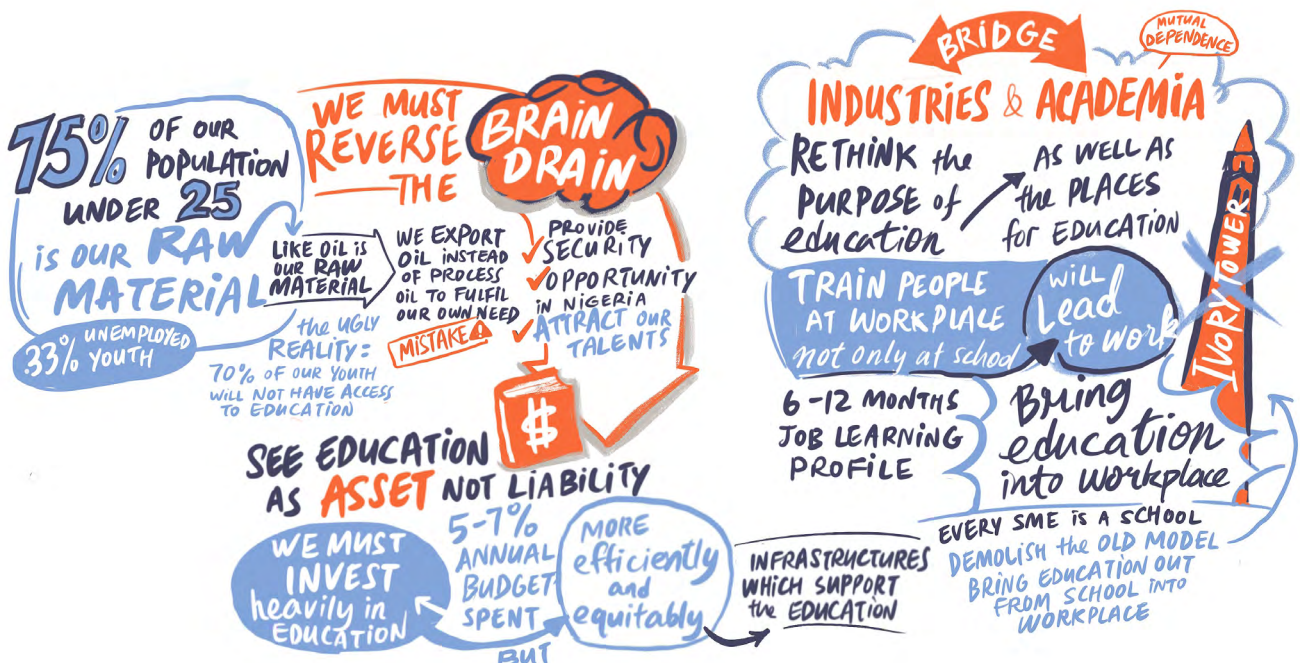 75% OF OUR
POPULATION
UNDER 25
is OUR RAW
MATERIAL
33% UNEMPLOYED
YOUTH
LIKE OIL is
OUR RAW
MATERIAL
WE EXPORT
OIL INSTEAD
OF PROCESS
OIL TO FULFIL
OUR OWN NEED
MISTAKE
the UGLY
REALITY:
70% OF OUR YOUTH
WILL NOT HAVE ACCESS
TO EDUCATION
WE MUST
REVERSE
THE
BRAIN
DRAIN
PROVIDE
SECURITY
OPPORTUNITY
IN NIGERIA
ATTRACT OUR
TALENTS
$
SEE EDUCATION
AS ASSET NOT LIABILITY
WE MUST
INVEST
heavily in
EDUCATION
5-7%
ANNUAL
BUDGET
SPENT
BUT
MORE
efficiently
and
equitably
INFRASTRUCTURES
WHICH SUPPORT
the EDUCATION
BRIDGE
MUTUAL
DEPENDENCE
INDUSTRIES & ACADEMIA
RETHINK the
PURPOSE of
education
AS WELL AS
the PLACES
for EDUCATION
TRAIN PEOPLE
AT WORKPLACE
not only at school
will
Lead
to work
IVORY TOWER
6-12 MONTHS
JOB LEARNING
PROFILE
Bring
education
into workplace
EVERY SME IS A SCHOOL
DEMOLISH the OLD MODEL
BRING EDUCATION OUT
FROM SCHOOL INTO
WORKPLACE